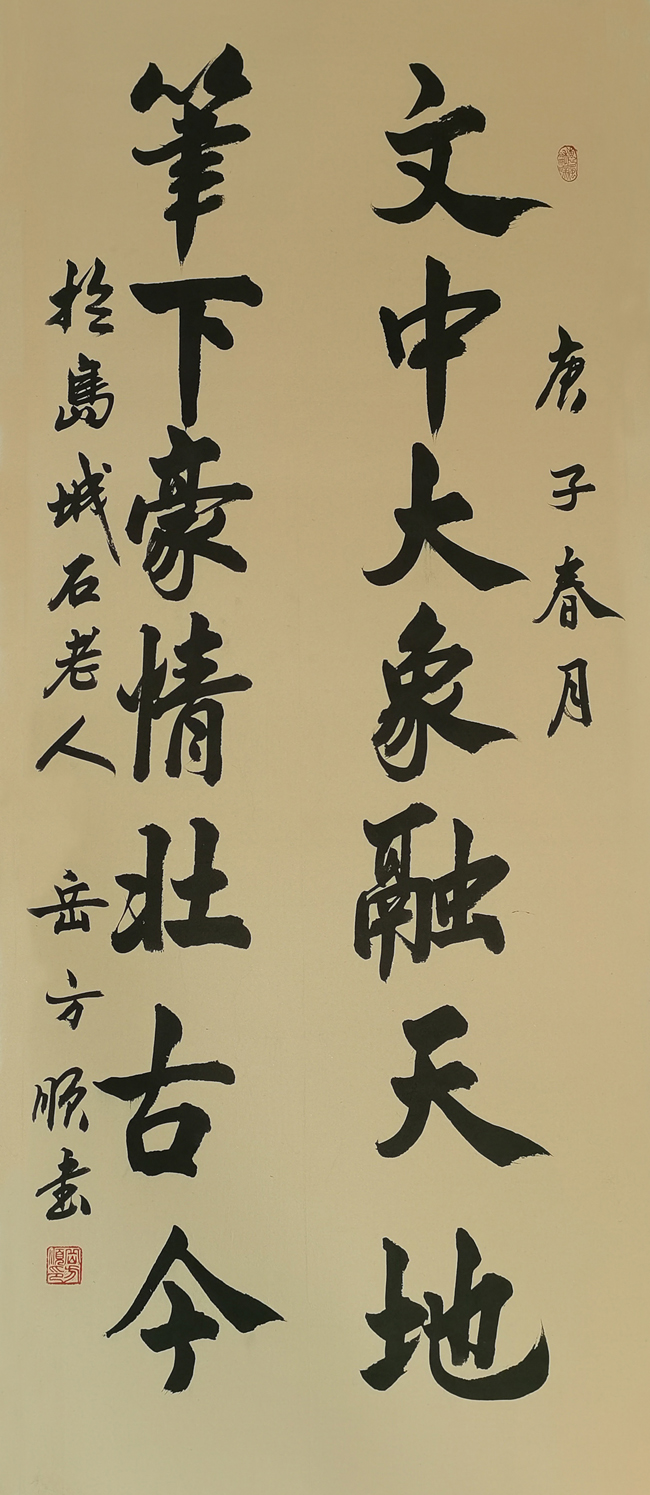 庚子春月
文中大象融天地
筆下豪情壮古今
於島城石老人 岳方順書